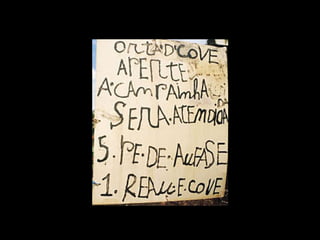 ORTA·D'COVE
APERTE
A·CAMPAINHA
SERA·ATENDIDA
5. PE·DE·AUFASE
1. REAU·E·COVE